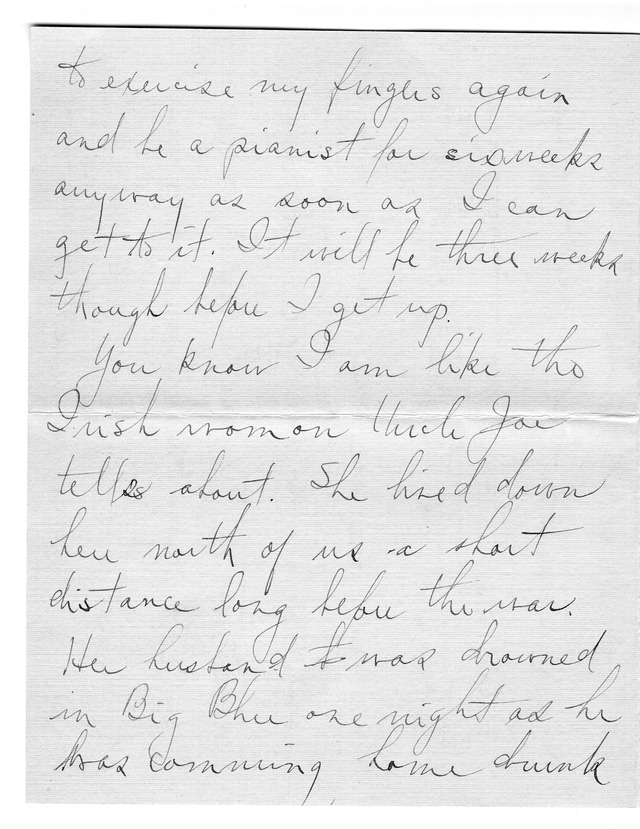 to exercise my fingers again
and be a pianist for six weeks
anyway as soon as I can
get to it. It will be three weeks
though before I get up.
You know I am like the
Irish woman Uncle Joe
tells about. She lived down
here north of us a short
distance long before the war.
Her husband was drowned
in Big Blue one night as he
was comming home drunk